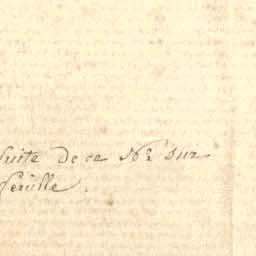 suite de ce No. sur
feuille.